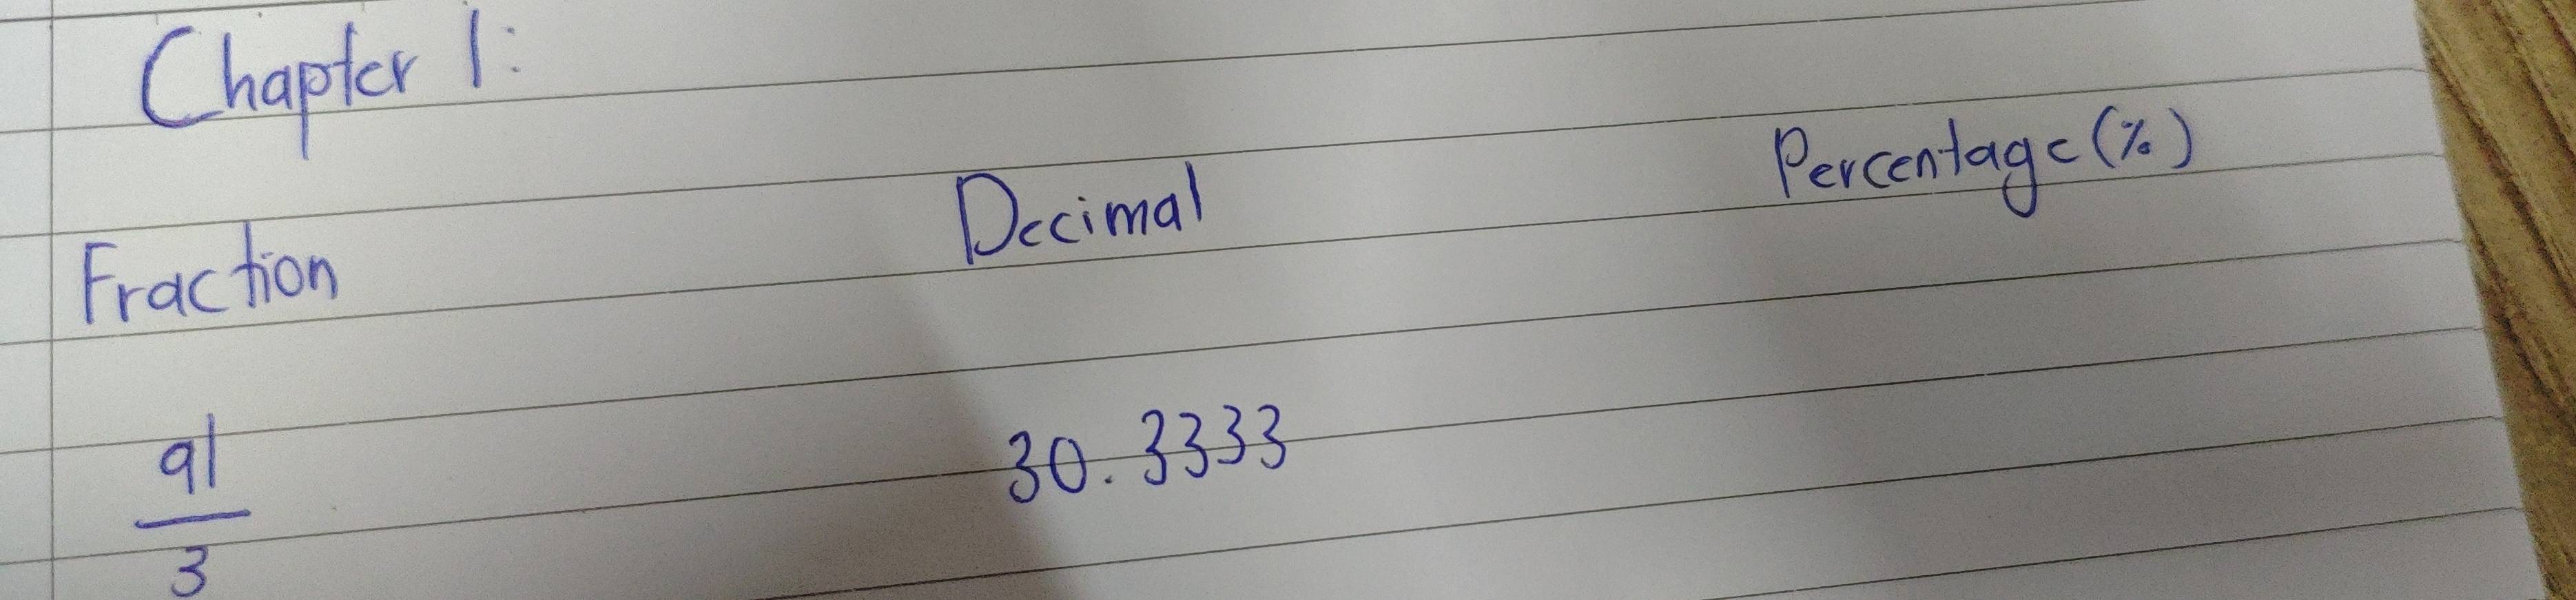 Chapter 1:
Fraction Decimal Percentage (%)
91 30.3333
3